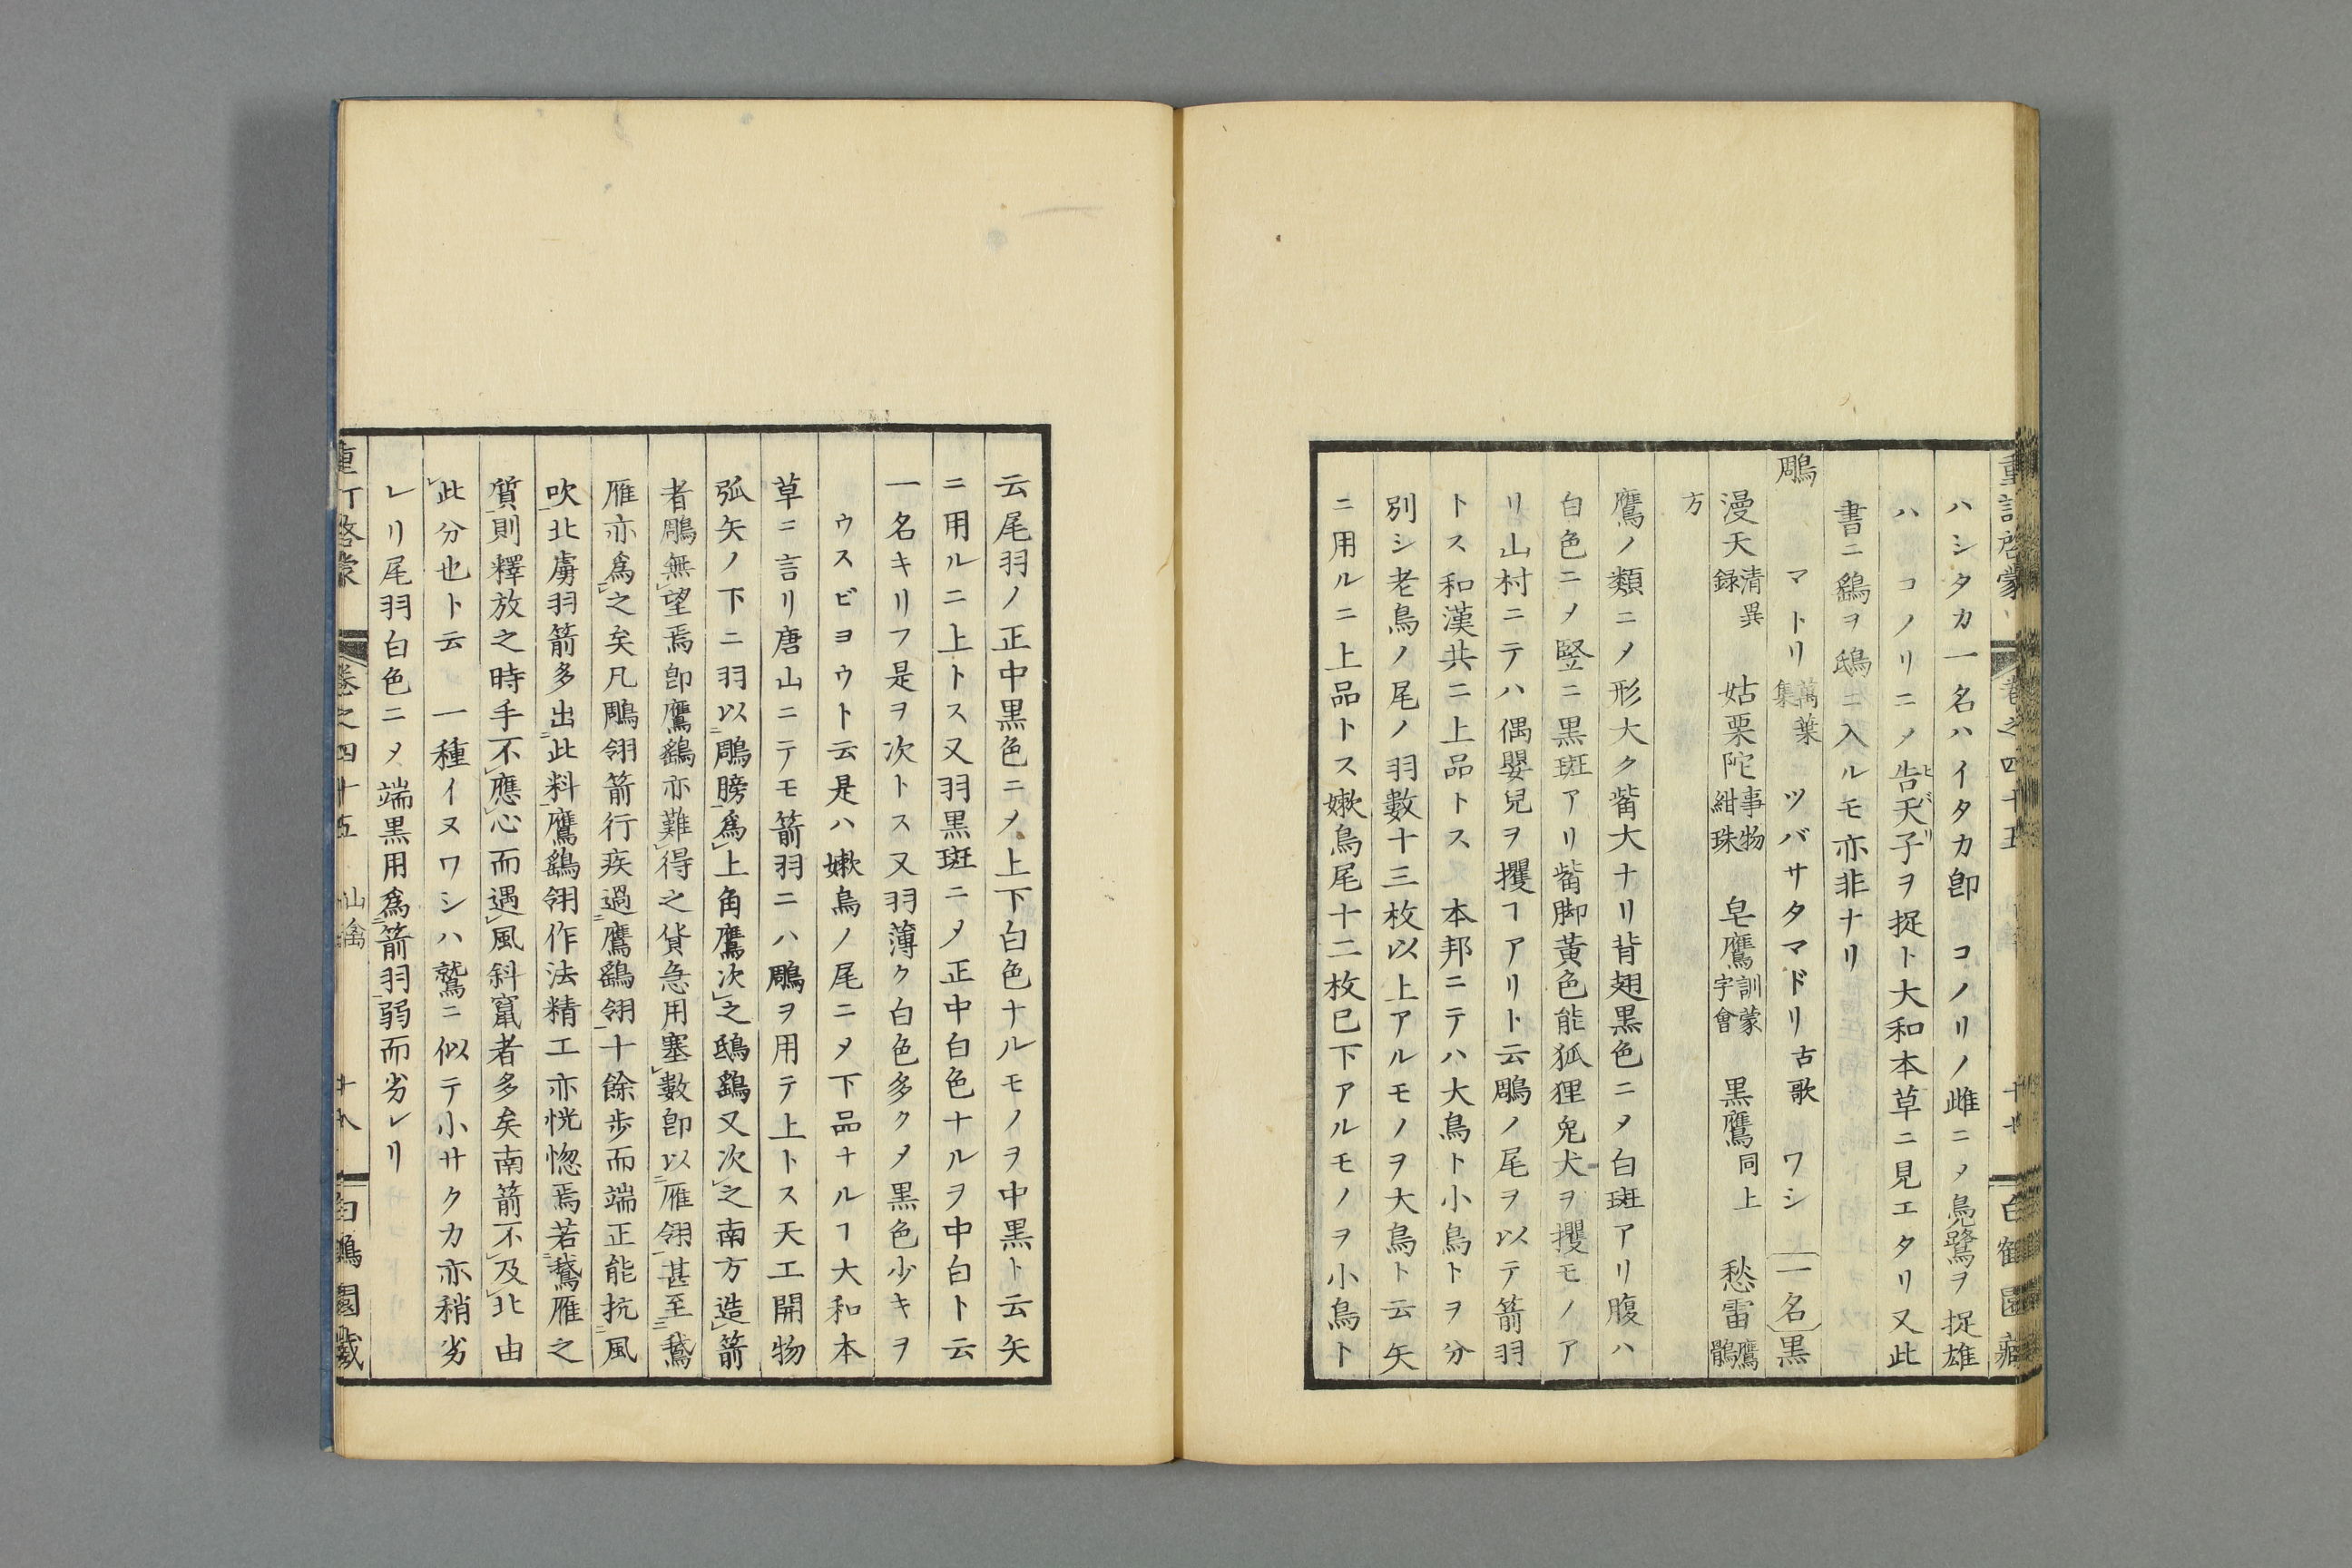 重訂啓蒙 卷之四十五 十七 白鶴園藏
ハシタカ一名ハイタカ卽 コノリノ雌ニメ鳧鷺ヲ捉雄
ハ コノリニメ告天子ヒバリヲ捉ト大和本草ニ見エタリ又此
書ニ鷂ヲ鴟ニ入ルモ亦非ナリ
鵰 マトリ萬葉集 ツバサタマドリ古歌 ワシ 一名黒
漫天清異録 姑栗陀事物紺珠 皂鷹訓蒙字會 黒鷹同上 愁雷鷹鶻
方
鷹ノ類ニメ形大ク觜大ナリ背翅黒色ニメ白斑アリ腹ハ
白色ニメ竪ニ黒斑アリ觜脚黃色能狐狸兔犬ヲ攫モノア
リ山村ニテハ偶嬰兒ヲ攫ヿアリト云鵰ノ尾ヲ以テ箭羽
トス和漢共ニ上品トス 本邦ニテハ大鳥ト小鳥トヲ分
別シ老鳥ノ尾ノ羽數十三枚以上アルモノヲ大鳥ト云矢
ニ用ルニ上品トス嫩鳥尾十二枚已下アルモノヲ小鳥ト
云尾羽ノ正中黒色ニメ上下白色ナルモノヲ中黒ト云矢
ニ用ルニ上トス又羽黒斑ニメ正中白色ナルヲ中白ト云
一名キリフ是ヲ次トス又羽薄ク白色多クメ黒色少キヲ
ウスビヨウト云是ハ嫩鳥ノ尾ニメ下品ナルヿ大和本
草ニ言リ唐山ニテモ箭羽ニハ鵰ヲ用テ上トス天工開物
弧矢ノ下ニ羽以鵰膀爲上角鷹次之鴟鷂又次之南方造箭
者鵰無望焉卽鷹鷂亦難得之貨急用塞數卽以雁翎甚至鵞
雁亦爲之矣凡鵰翎箭行疾過鷹鷂翎十餘歩而端正能抗風
吹北虜羽箭多出此料鷹鷂翎作法精工亦恍惚焉若鵞雁之
質則釋放之時手不應心而遇風斜竄者多矣南箭不及北由
此分也ト云 一種イヌワシハ鷲ニ似テ小サクカ亦稍劣
レリ尾羽白色ニメ端黒用爲箭羽弱而劣レリ
重訂啓蒙 卷之四十五 山禽 十八 白鶴園藏